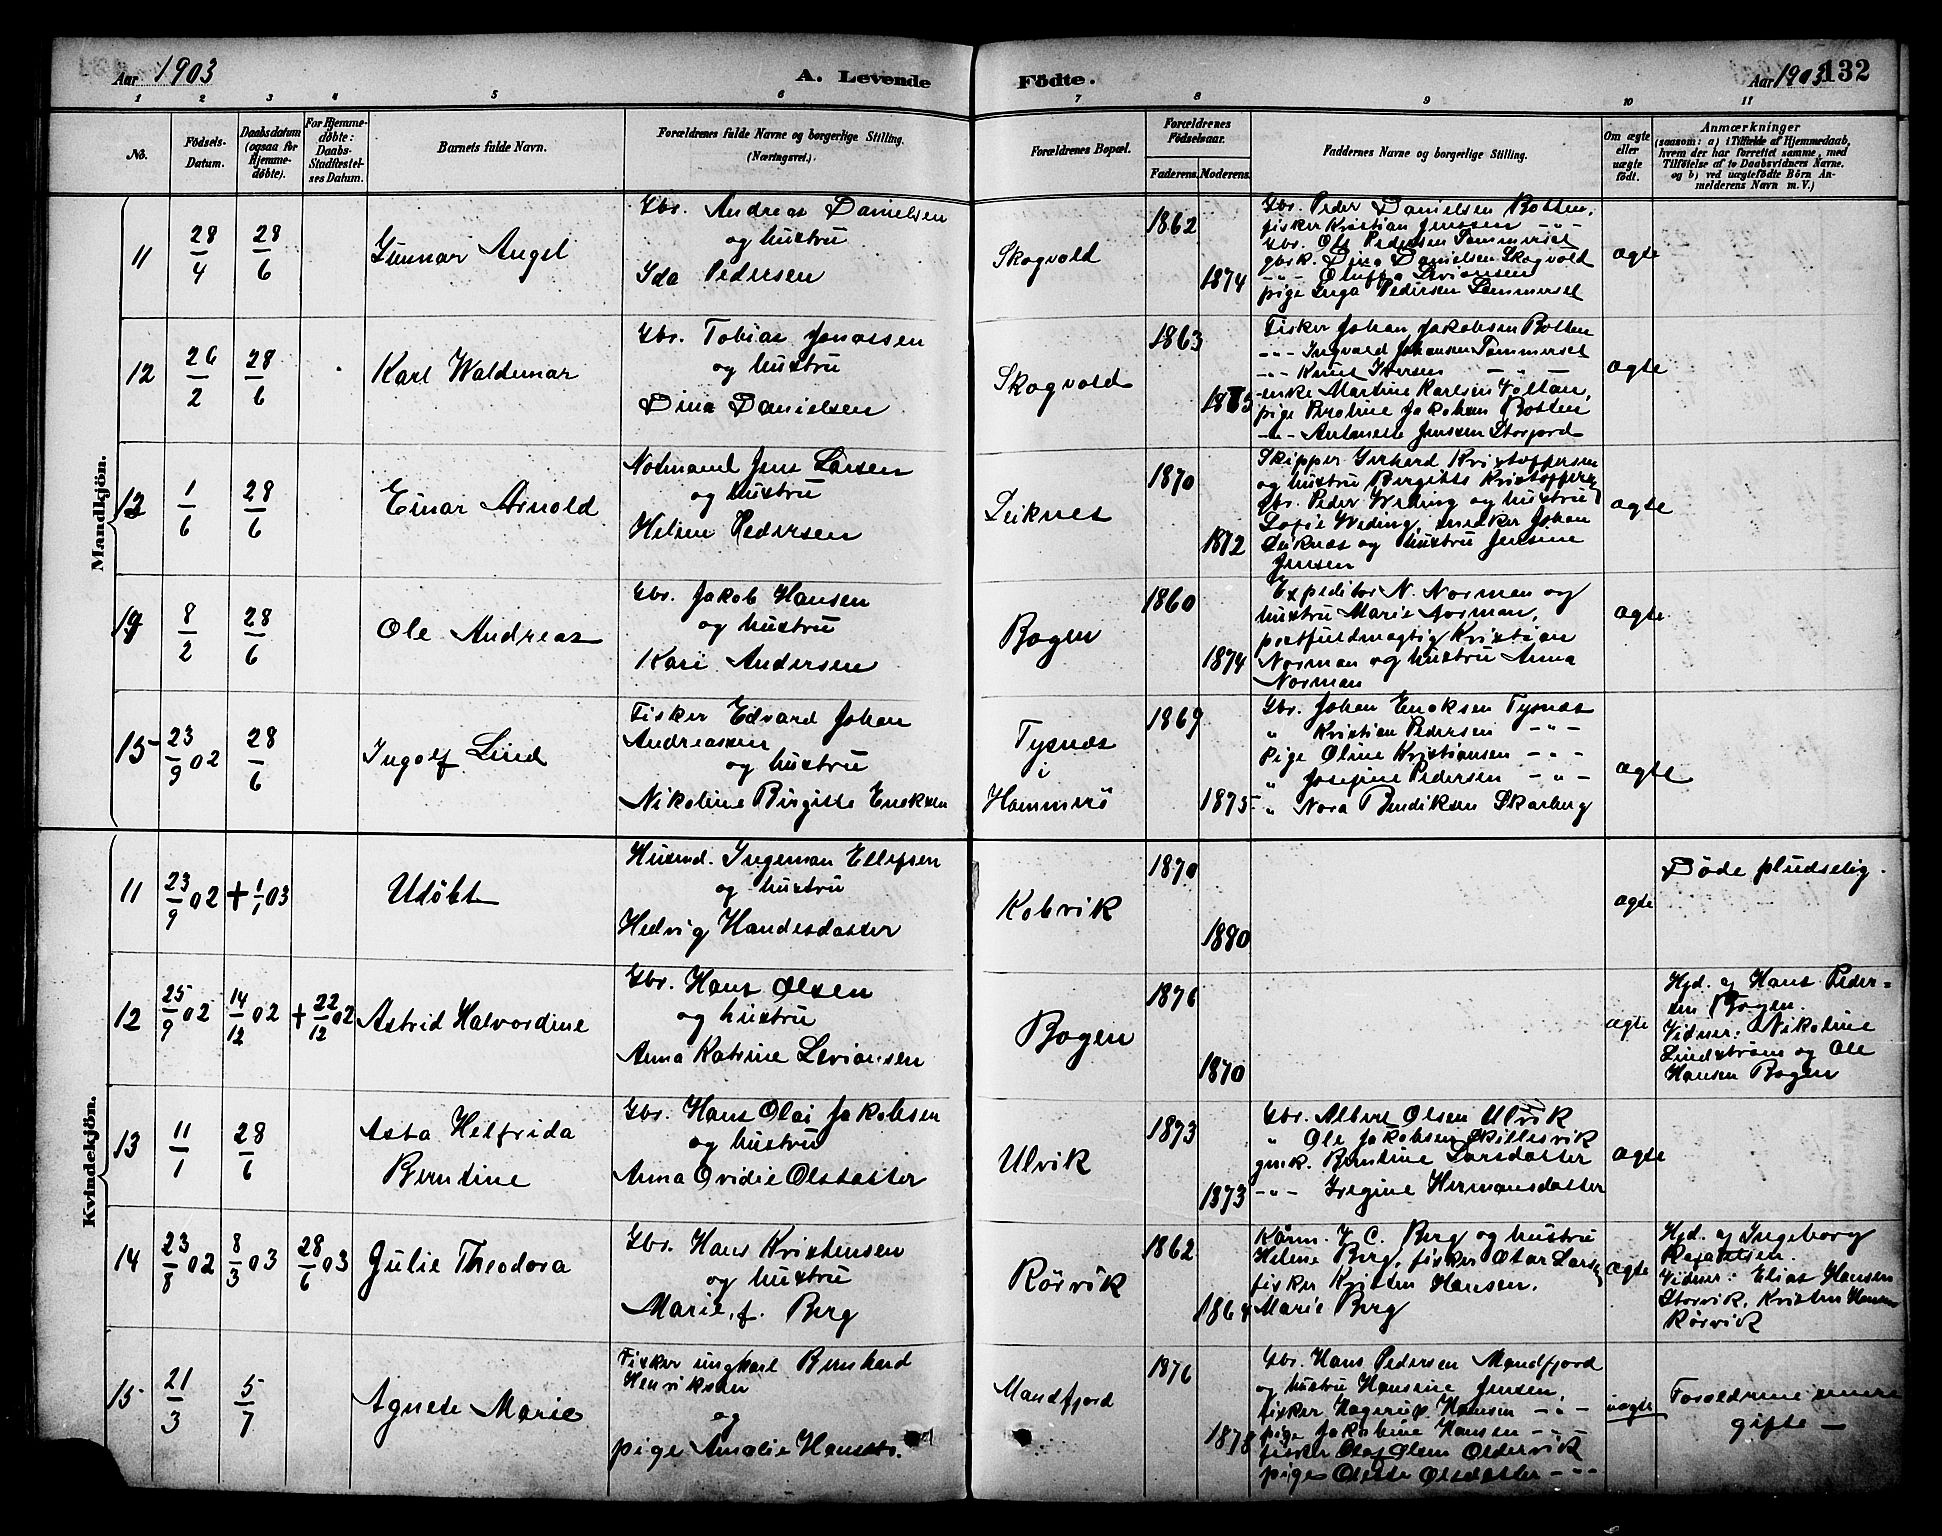 Aar 1903
A. Levende
Födte.
Aar 1903
132
1 2 3 4 5 6 7 8 9 10 11
No.
Födsels-
Datum.
Daabsdatum
(ogsaa for
Hjemme-
döbte).
For Hjemme-
døbte:
Daabs-
Stadfæstel-
ses Datum.
Barnets fulde Navn.
Forældrenes fulde Navne og borgerlige Stilling.
(Næringsvei.)
Forældrenes Bopæl.
Forældrenes
Födselsaar.
Faderens. Moderens.
Faddernes Navne og borgerlige Stilling.
Om ægte
eller
uægte
født.
Anmærkninger
(saasom: a) i Tilfælde af Hjemmedaab,
hvem der har forrettet samme, med
Tilföielse af to Daabsvidners Navne.
og b) ved uægtefödte Börn An-
melderens Navn m. V.)
Mandkjön.
11
28/4
28/6
Gunnar Angel
Gbr. Andreas Danielsen
og hustru
Ida Pedersen
Skogvold
1862
1874
Gbr. Peder Danielsen Botten,
fisker Kristian Jenssen -"-
Gbr. Ole Pedersen Tommerset
gbrk. Dina Danielsen Skogvold
-"- Oluffa Leviansen
pige Inga Pedersen Sommerset
ægte
12
26/2
28/6
Karl Waldemar
Gbr. Tobias Jonassen
og hustru
Dina Danielsen
Skogvold
1863
1875
Fisker Johan Jakobsen Botten
-"- Ingvald Johansen Tommerset
-"- Knut Iversen -"-
enke Martine Karlsen
pige Beroline Jakobsen Botten
-"- Antonette Jenssen Storjord
ægte
13
1/6
28/6
Einar Arnold
Notmand Jens Larsen
og hustru
Heline Pedersen
Leiknes
1870
1872
Skipper Gerhard Kristoffersen
og hustru Birgitte Kristoffersen
Gbr. Peder Weding og hustru
Sofie Weding, snedker Johan
Leiknes og hustru Jensine
Jensen
ægte
14
8/2
28/6
Ole Andreas
Gbr. Jakob Hansen
og hustru
Kari Andersen
Bogen
1860
1874
Expeditor N. Norman og
hustru Marie Norman,
postfuldmægtig Kristian
Norman og hustru Anna
Norman
ægte
15
23/9 02
28/6
Ingolf Lind
Fisker Edvard Johan
Andreassen
og hustru
Nikoline Birgitte Eriksen
Tysnes
i
Hammerö
1869
1875
Gbr. Johan Eriksen Tysnes
" Kristian Pedersen -"-
Pige Oline Kristiansen -"-
" Josefine Pedersen -"-
" Nora Bendiksen Skarberg
ægte
Kvindekjön.
11
23/9 02
+ 1/1 03
Udöbt
Husmd. Ingeman Ellefsen
og hustru
Hedvig Handesdatter
Kobvik
1870
1880
ægte
Döde pludselig.
12
25/9 02
14/12 02
+ 22/12 02
Astrid Halvordine
Gbr. Hans Olsen
og hustru
Anna Katrine Leviansen
Bogen
1876
1870
ægte
Hjd. af Hans Peder-
sen Bogen.
Vidner: Nikoline
Lindström og Ole
Hansen Bogen
13
11/1
28/6
Asta Helfrida
Berntine
Gbr. Hans Olai Jakobsen
og hustru
Anna Ovidie Olsdatter
Ulvik
1873
1873
Gbr. Albert Olsen Ulvik
" Ole Jakobsen Skillesvik
gmk. Berntine Larsdatter
-"- Gregine Hermansdatter
ægte
14
23/8 02
8/3 03
28/6 03
Julie Theodora
Gbr. Hans Kristensen
og hustru
Marie, f. Berg
Rörvik
1862
1864
Kårm. J. C. Berg og hustru
Helene Berg, fisker Otar Larsen
fisker Kristen Hansen.
Marie Berg
ægte
Hjd. af Ingeborg
Rafaelsen.
Vidner: Elias Hansen
Storvik, Kristen Hansen
Rörvik
15
21/3
5/7
Agnete Marie
Fisker ungkarl Bernhard
Henriksen
og
pige Amalie Hansdtr.
Mandfjord
1876
1878
Gbr. Hans Pedersen Mandfjord
og hustru Hansine Jensen,
fisker Hagerup Hansen -"-
pige Jakobine Hansen -"-
fisker Olaf Olsen Oldervik
pige Olette Olsdatter -"-
uægte
Forældrene senere
gifte —